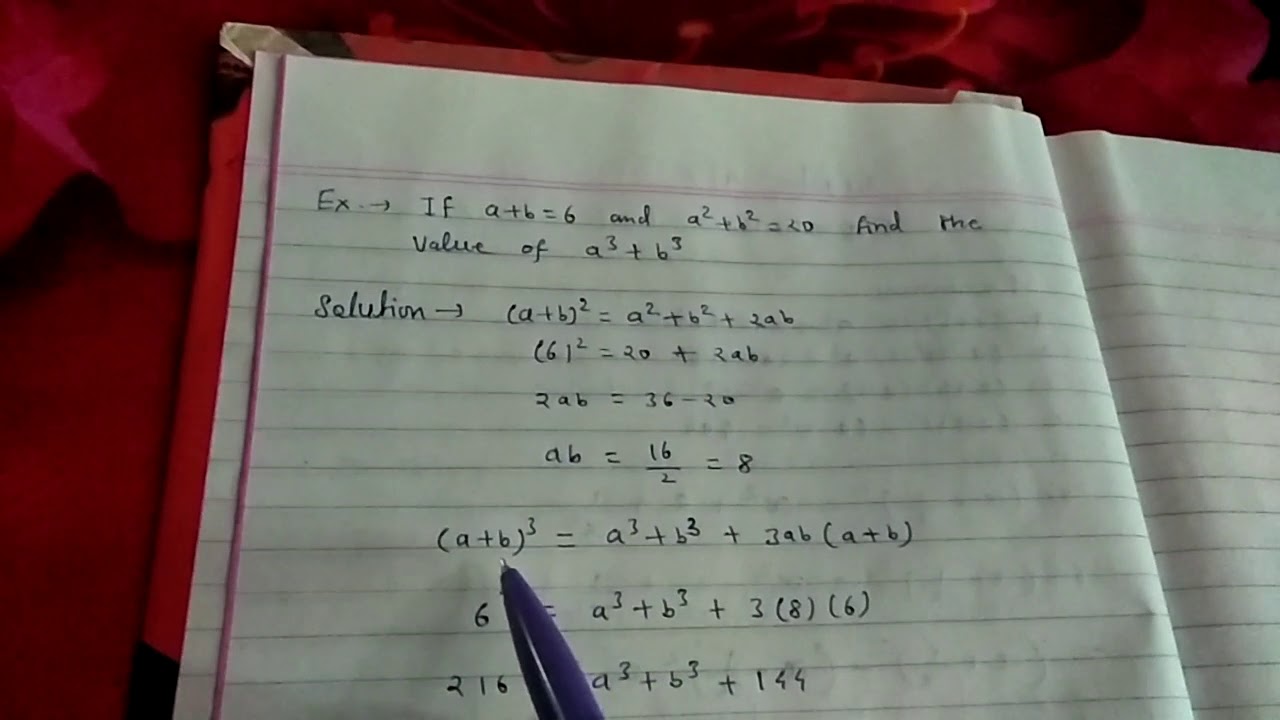 Ex. → If a+b=6 and a²+b²=20 find the
value of a³+b³
Solution → (a+b)² = a²+b²+2ab
(6)² = 20 + 2ab
2ab = 36-20
ab = 16/2 = 8
(a+b)³ = a³+b³ + 3ab(a+b)
6 = a³+b³ + 3(8)(6)
216 a³+b³ + 144